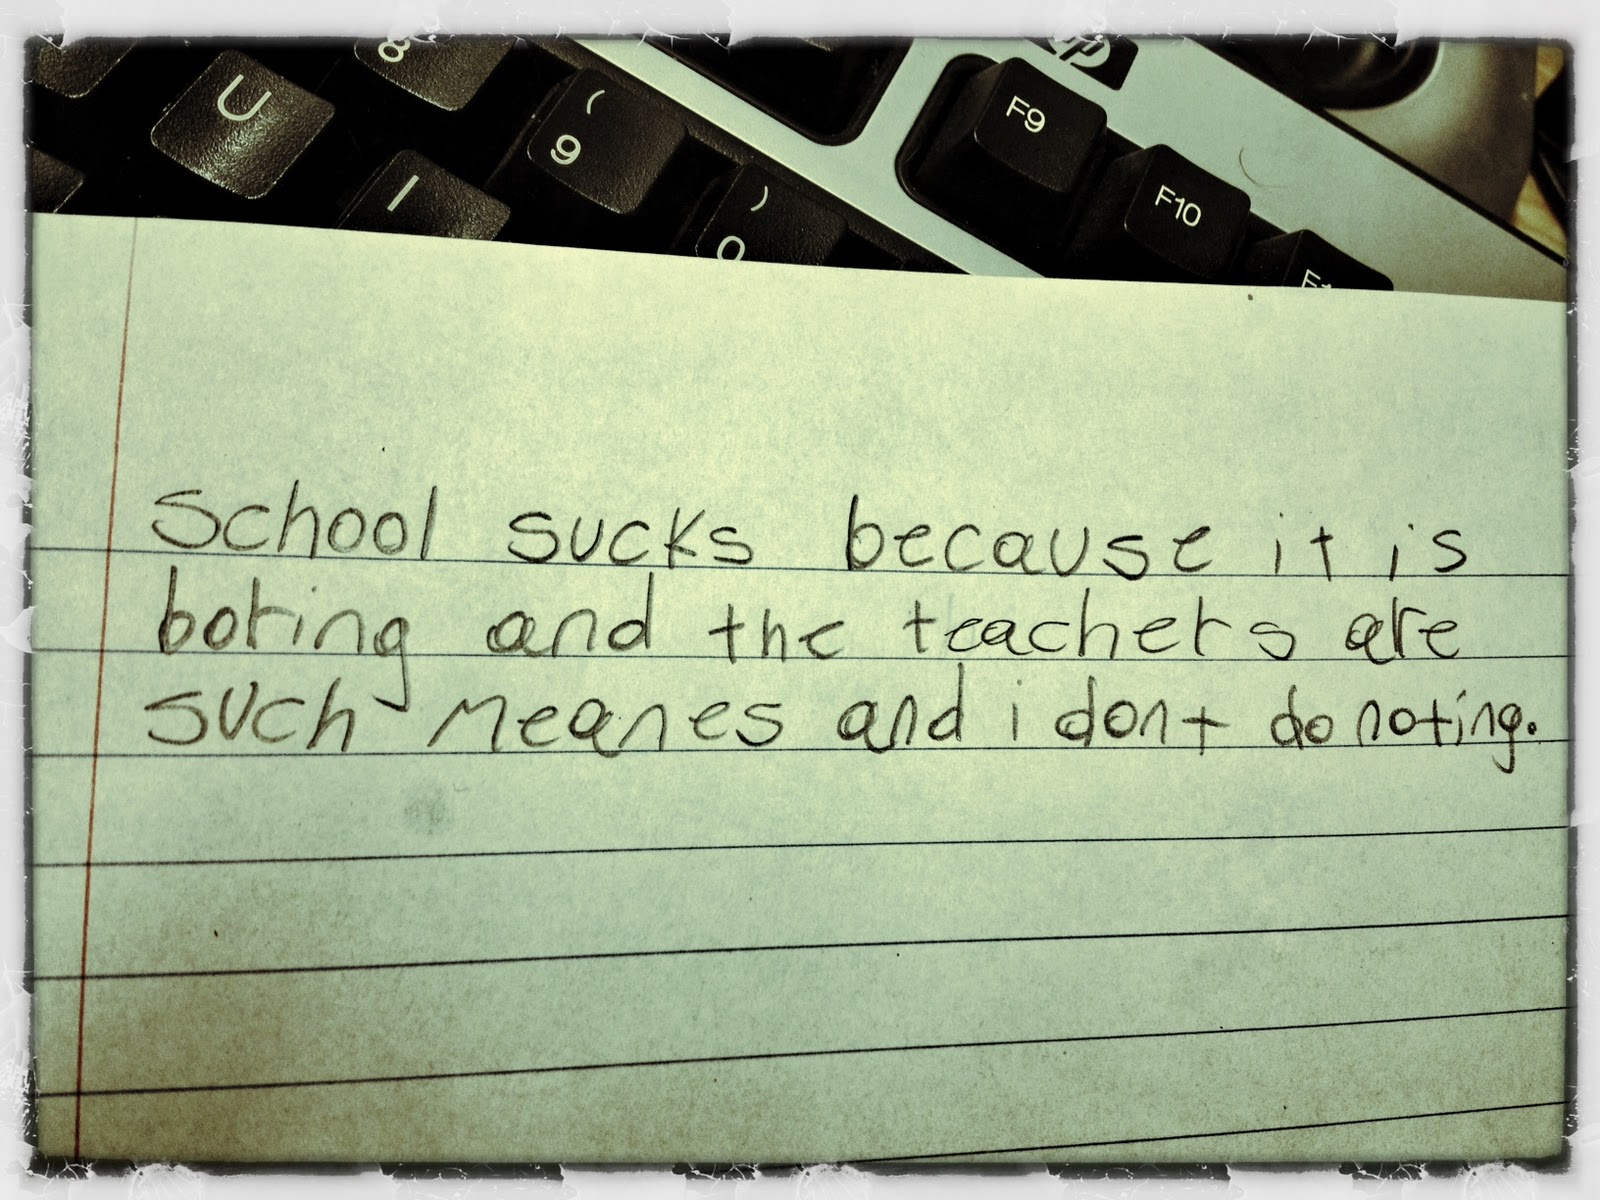 8
U
( 9
I
) 0
hp
F9
F10
School sucks because it is
boring and the teachers are
such meanes and i dont do noting.